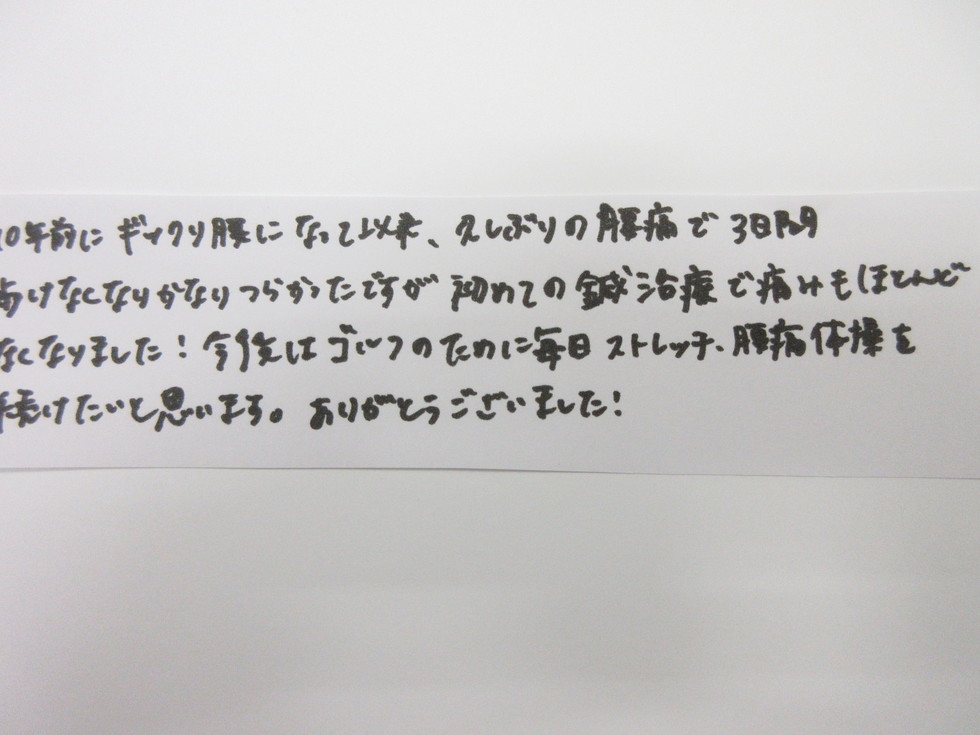 10年前にギックリ腰になって以来、久しぶりの腰痛で3日間
歩けなくなりかなりつらかったですが初めての鍼治療で痛みもほとんど
なくなりました!今後はゴルフのために毎日ストレッチ、腰痛体操を
続けたいと思います。ありがとうございました!